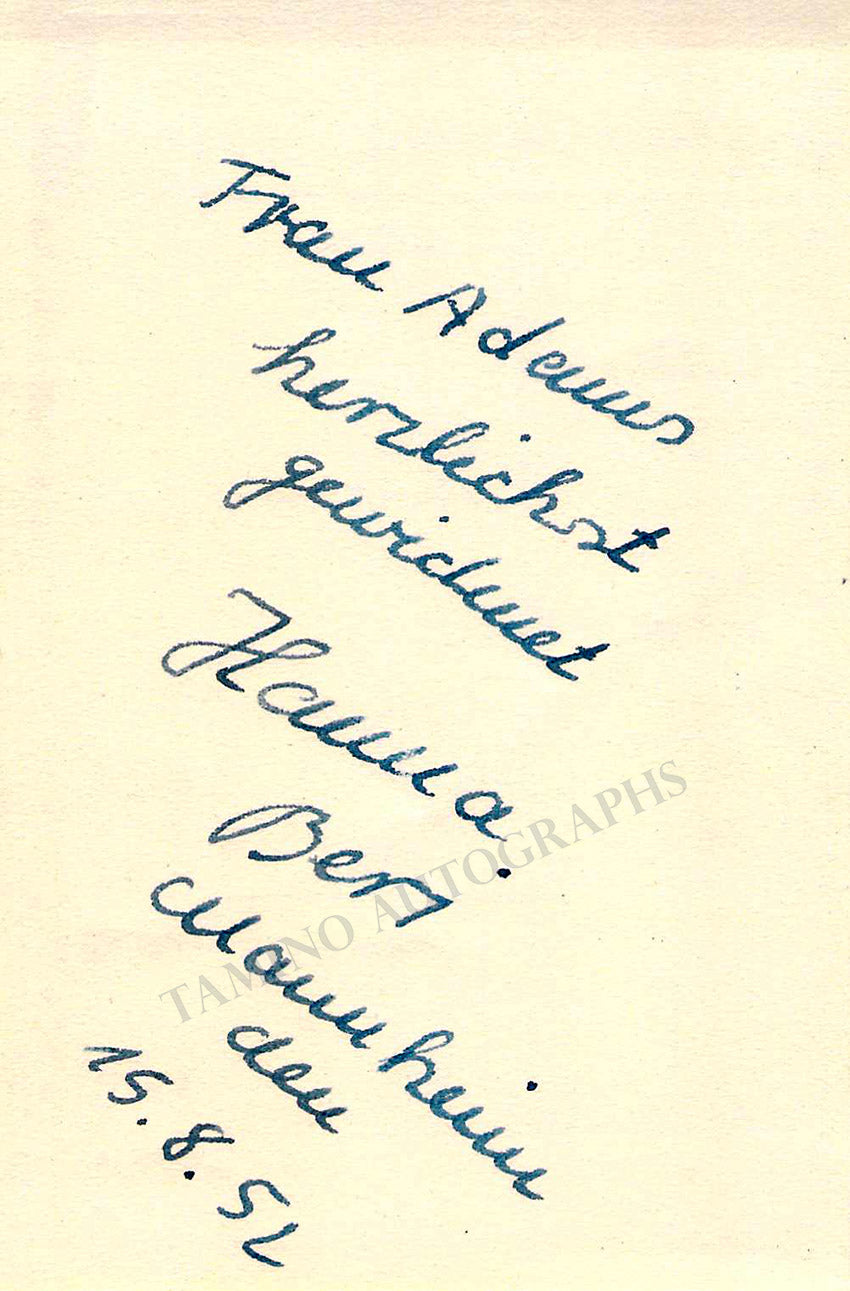 Frau Adams
herzlichst
gewidmet
Hanna
Berz
Mannheim
den
15.8.52
TAMINO AUTOGRAPHS